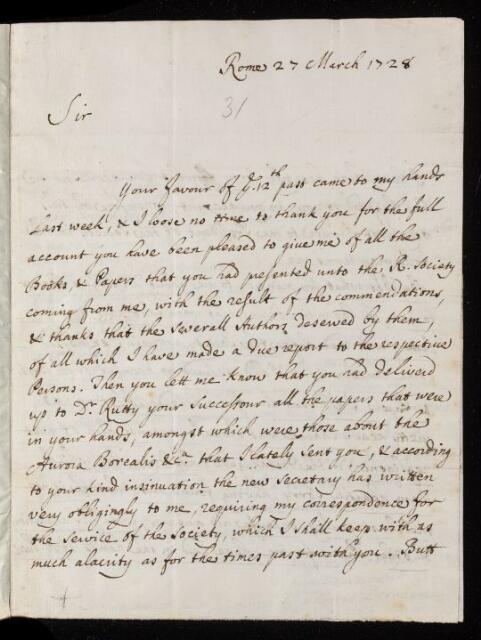 Rome 27 March 1728
31
Sir
Your favour of ye. 12th past came to my hands
Last week, & I loose no time to thank you for the full
account you have been pleased to give me of all the
Books, & Papers that you had presented unto the R. Society
coming from me, with the result of the commendations,
& thanks that the Severall Authors deserved by them,
of all which I have made a due report to the respective
Persons. Then you lett me know that you had deliverd
up to Dr. Rutty your Successour all the papers that were
in your hands, amongst which were those about the
Aurora Borealis &ca. that I lately sent you, & according
to your kind insinuation the new Secretary has written
very obligingly to me, requiring my correspondence for
the service of the Society, which I shall keep with as
much alacrity as for the times past with you. Butt